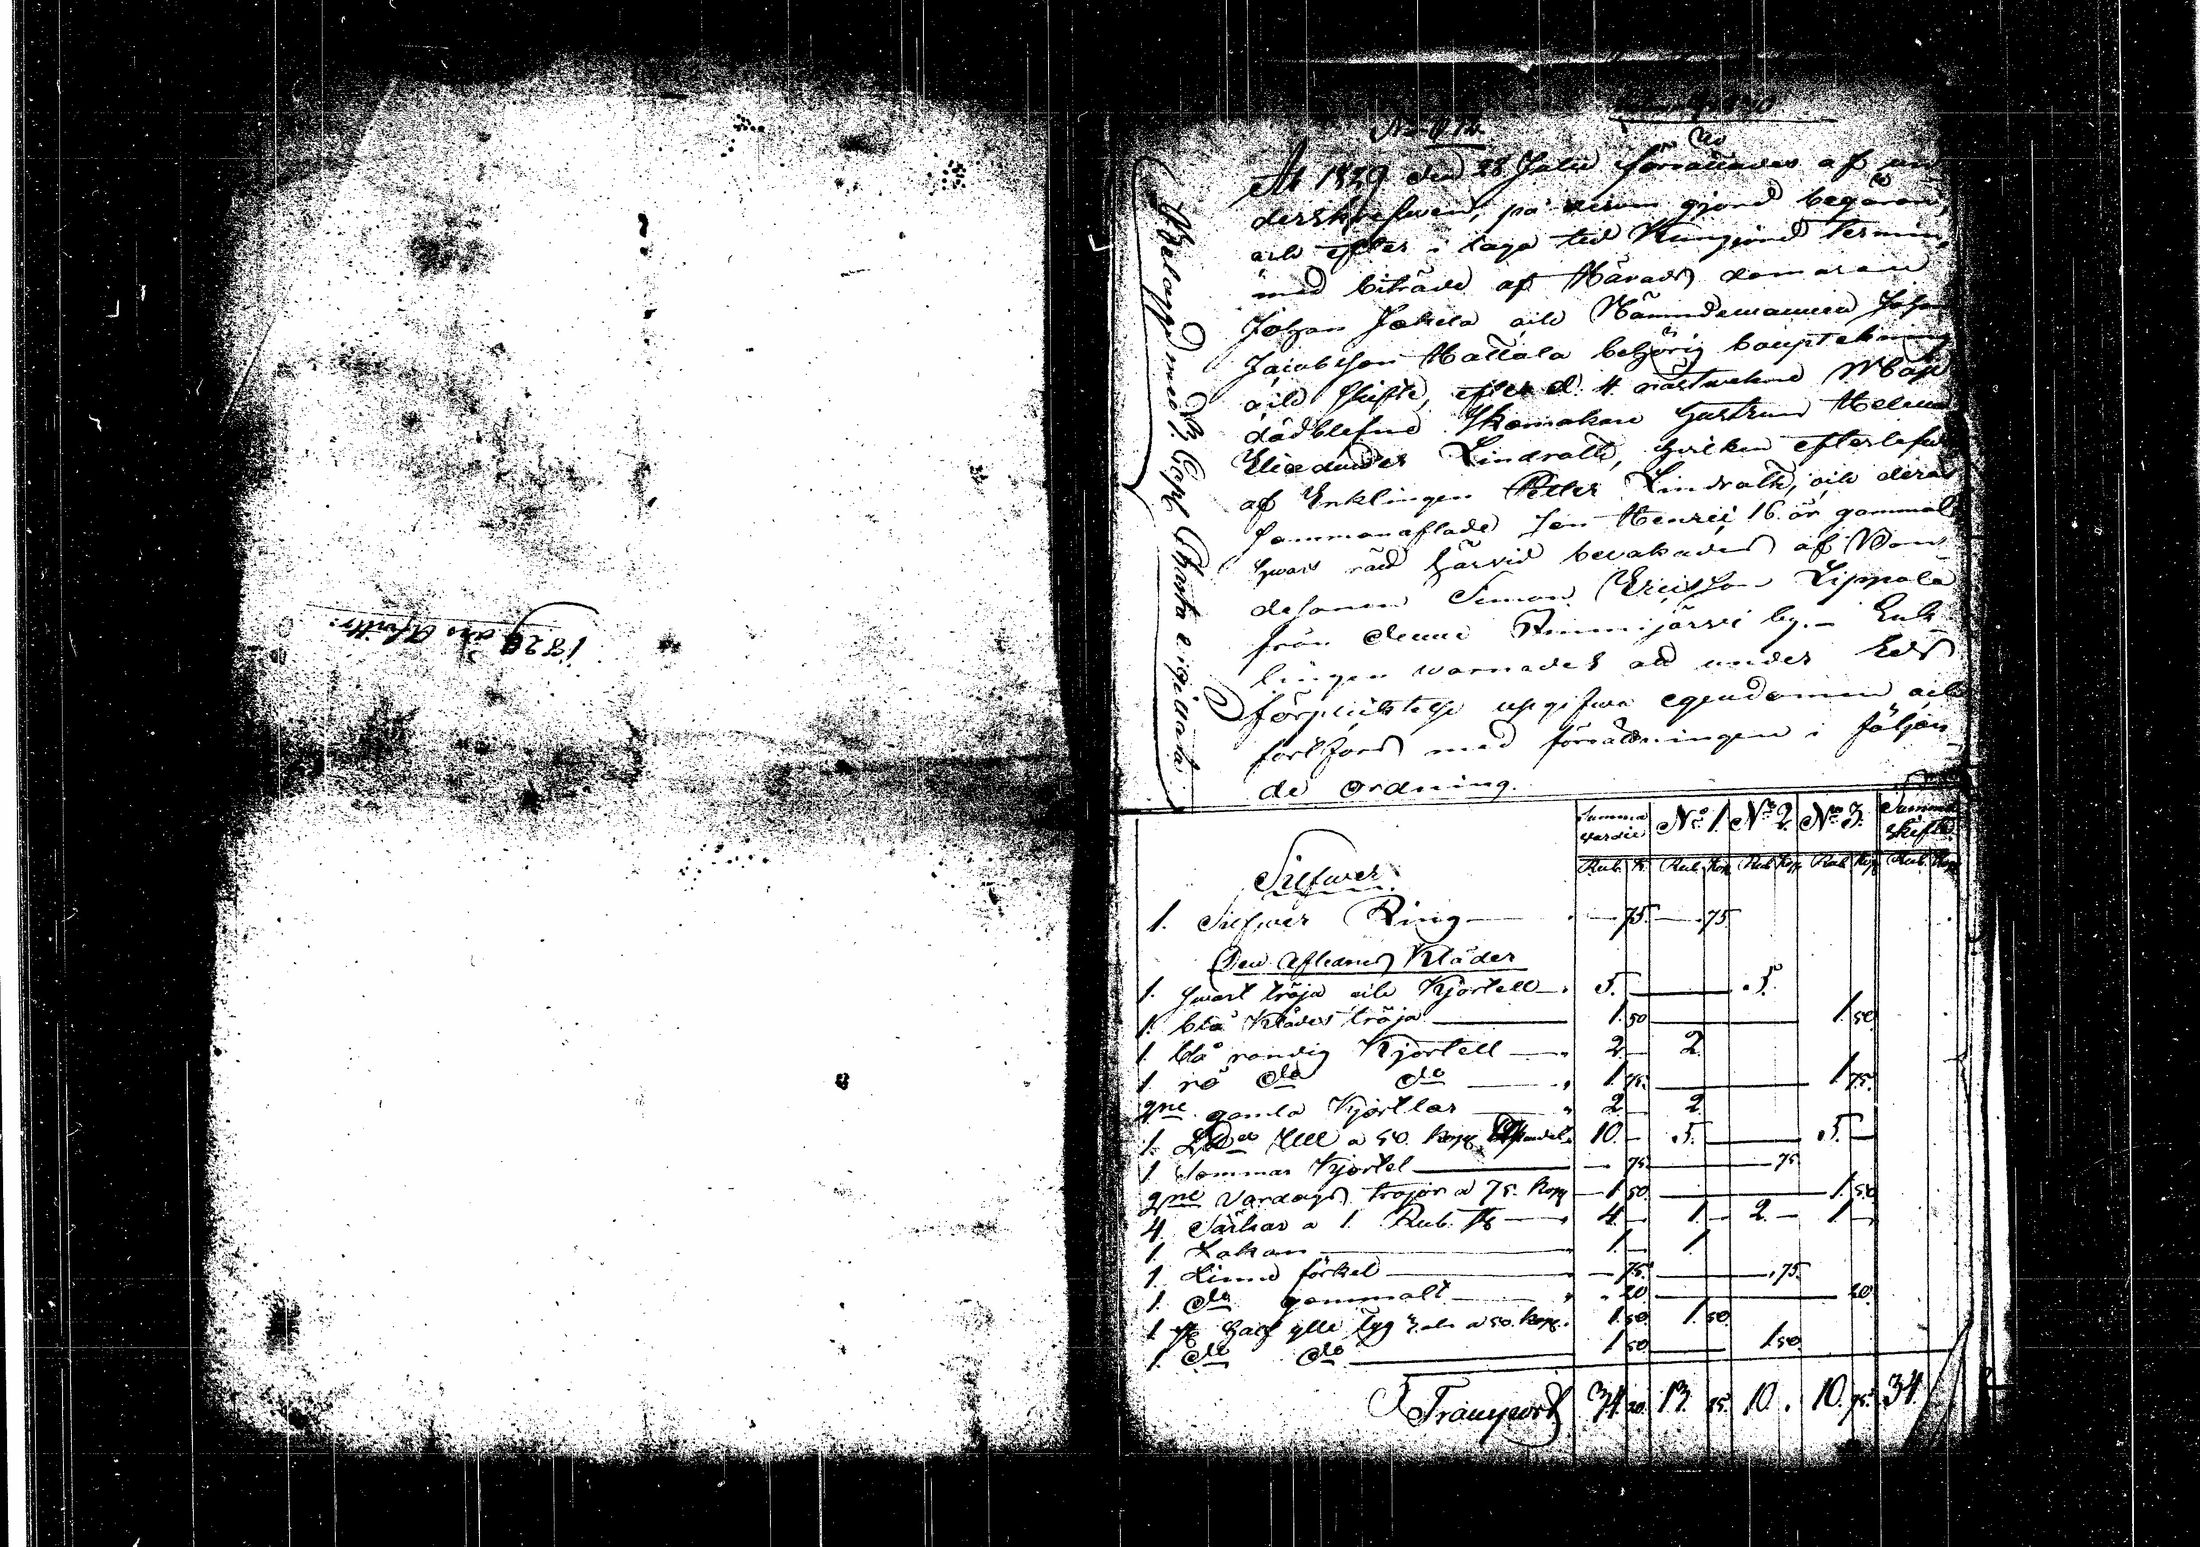 1829 års
År 1829 den 28 Julii förrättades af un-
derskrefwen, på derom gjord begäran,
och efter i laga tid Kungjord termin,
med biträde af Härads domaren
Johan Jokela och Nämndemannen Johan
Jacobsson Hattala behörig boupteckning
och skifte, efter d. 4 nästwekne Maji
dödblefne Skomakare hustrun Helena
Lindroth, hvilken efterlefwes
af Enklingen Petter Lindroth, och deras
sammanaflade son Henric 16 år gammal
hwars räd härvid bevakades af Bon-
desonen Simon Ericsson Lippola
från denne Ammijärvi by. Enk-
lingen warnades att under Eds
förplicktelse upgifwa egendomen och
fortfors med förrättningen i följan-
de ordning.
Belagd med Kop. Charta Sigillata
Summa värdie No 1. No 2. No 3. Summa skifte
Rub. K. Rub. Kop. Rub. Kop. Rub. Kop. Rub. Kop.
Silfwer
1. Silfwer Ring — 75. — 75.
Den Aflednes Kläder
1. Swart tröja och Kjortell 5. — 5.
1. blå Klädes tröja 1. 50 — 1. 50
1. blå randig Kjortell 2. — 2.
1. rö do do 1. 75. — 1. 75.
2ne gamla Kjortlar 2. — 2.
1. Ull a 50. kop. 10. — 5. — 5. —
1. Sommar Kjortel — 75. — 75
2ne Vardags tröjor a 75. Kop. 1. 50. — 1. 50
4. Särkar a 1. Rub. 4. — 1. — 2. — 1. —
1. Lakan 1. — 1
1. Linne förkel — 75. — 75.
1. do gammalt 20 — 20.
1. half ylle tyg 3 aln a 50. kop. 1. 50. 1. 50.
1. do do 1. 50. — 1. 50.
Transport 34. 20. 13. 25. 10. 10. 75. 34